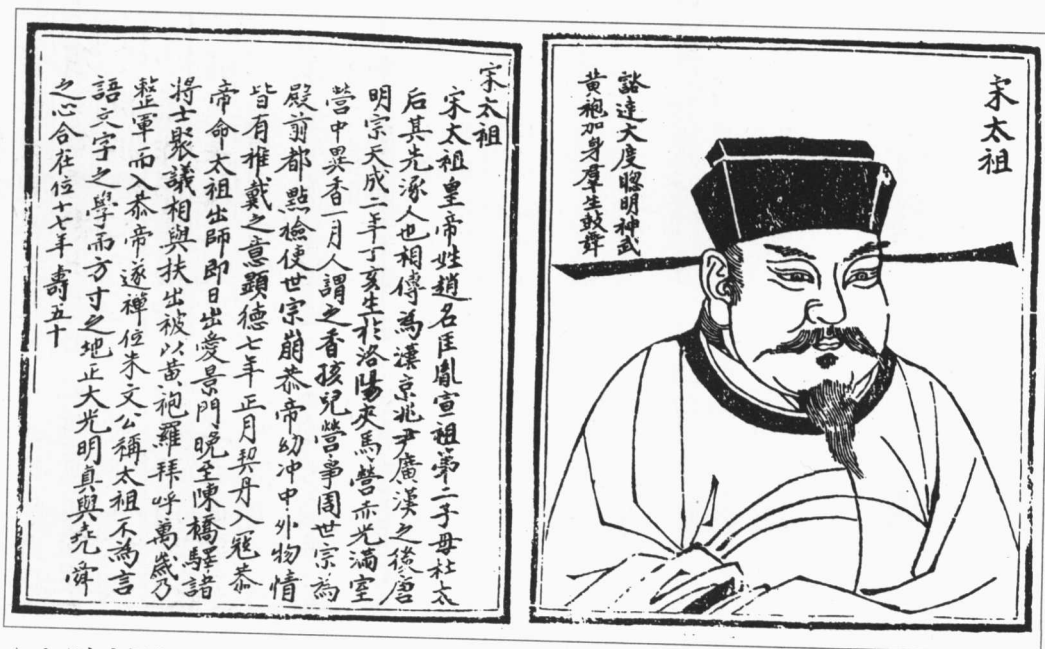 宋太祖
豁達大度聰明神武
黃袍加身羣生鼓舞
宋太祖
宋太祖皇帝姓趙名匡胤宣祖第二子母杜太
后其先涿人也相傳為漢京兆尹廣漢之後唐
明宗天成二年丁亥生於洛陽夾馬營赤光滿室
營中異香一月人謂之香孩兒營事周世宗為
殿前都點檢使世宗崩恭帝幼冲中外物情
皆有推戴之意顯德七年正月契丹入寇恭
帝命太祖出師即日出愛景門晚至陳橋驛諸
將士聚議相與扶出被以黃袍羅拜呼萬歲乃
整軍而入恭帝遂禪位朱文公稱太祖不為言
語文字之學而方寸之地正大光明真與堯舜
之心合在位十七年壽五十